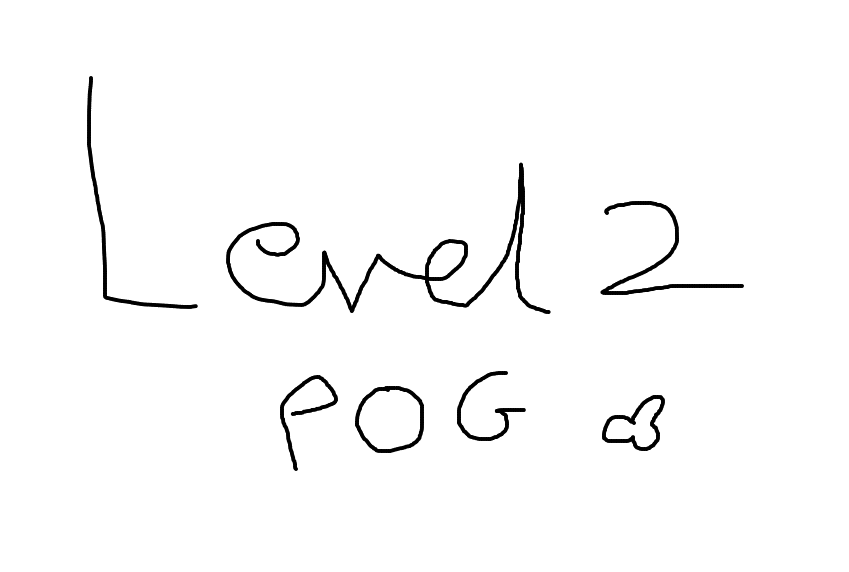 Level 2
POG